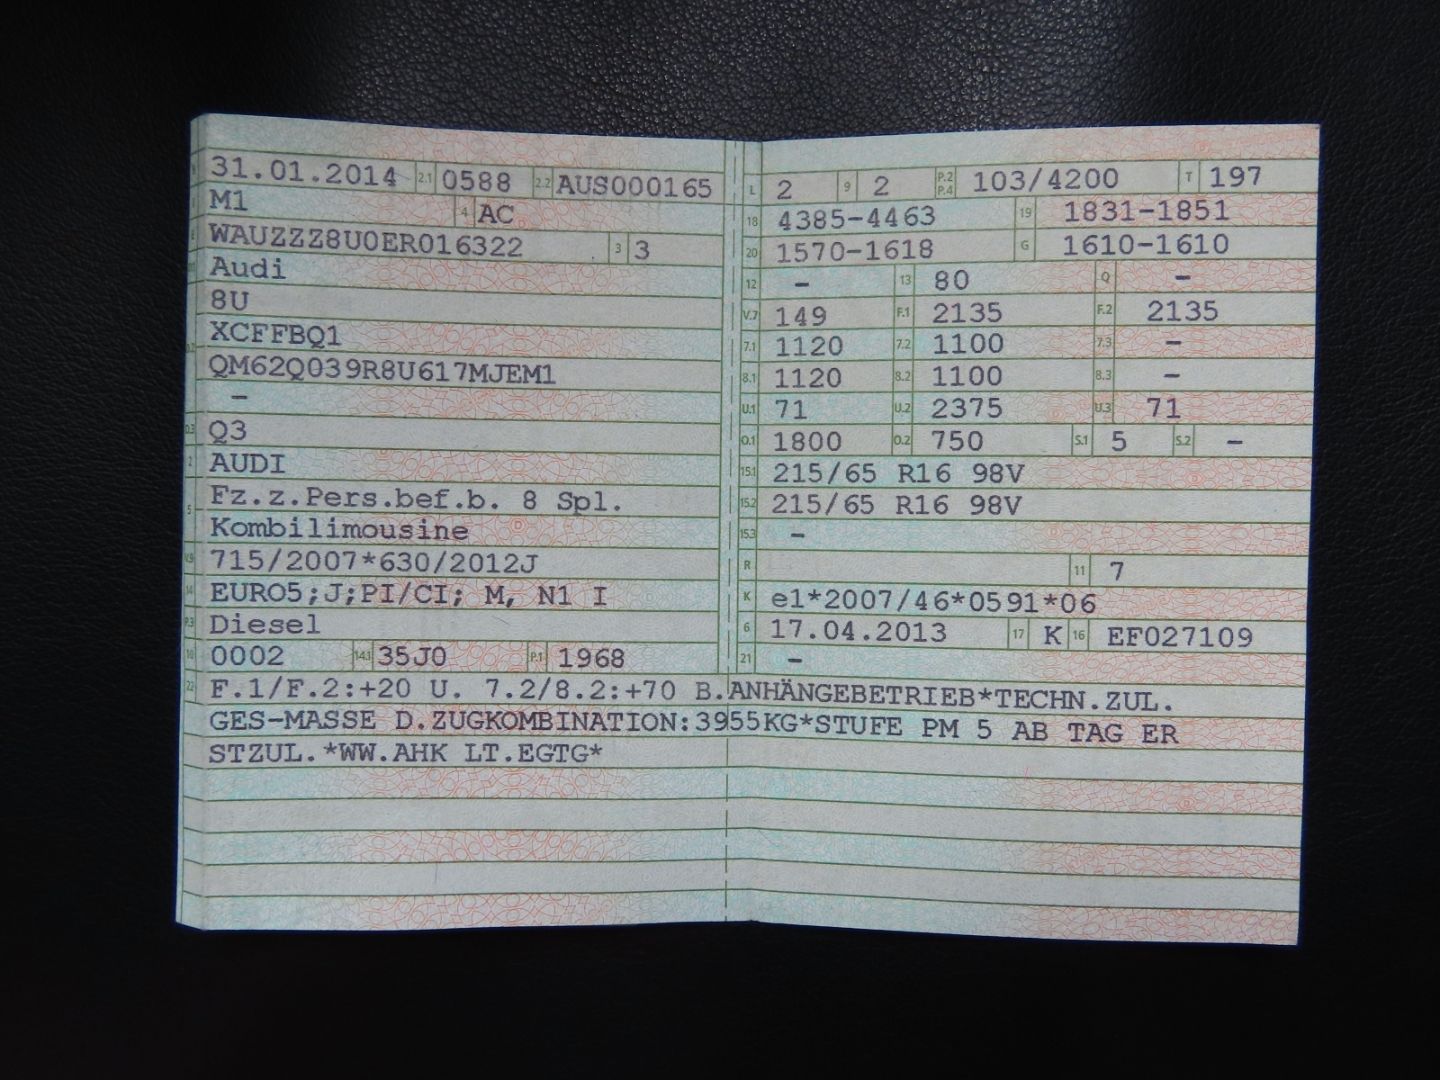 31.01.2014 2.1 0588 2.2 AUS000165
M1 4 AC
WAUZZZ8U0ER016322 3 3
Audi
8U
XCFFBQ1
QM62Q039R8U617MJEM1
–
Q3
2 AUDI
5 Fz.z.Pers.bef.b. 8 Spl.
Kombilimousine
V.9 715/2007*630/2012J
14 EURO5;J;PI/CI; M, N1 I
P.3 Diesel
10 0002 14.1 35J0 P.1 1968
L 2 9 2 P.2 P.4 103/4200 T 197
18 4385-4463 19 1831-1851
20 1570-1618 G 1610-1610
12 – 13 80 Q –
V.7 149 F.1 2135 F.2 2135
7.1 1120 7.2 1100 7.3 –
8.1 1120 8.2 1100 8.3 –
U.1 71 U.2 2375 U.3 71
O.1 1800 O.2 750 S.1 5 S.2 –
15.1 215/65 R16 98V
15.2 215/65 R16 98V
15.3 –
R 11 7
K e1*2007/46*0591*06
6 17.04.2013 17 K 16 EF027109
21 –
22 F.1/F.2:+20 U. 7.2/8.2:+70 B.ANHÄNGEBETRIEB*TECHN.ZUL.
GES-MASSE D.ZUGKOMBINATION:3955KG*STUFE PM 5 AB TAG ER
STZUL.*WW.AHK LT.EGTG*